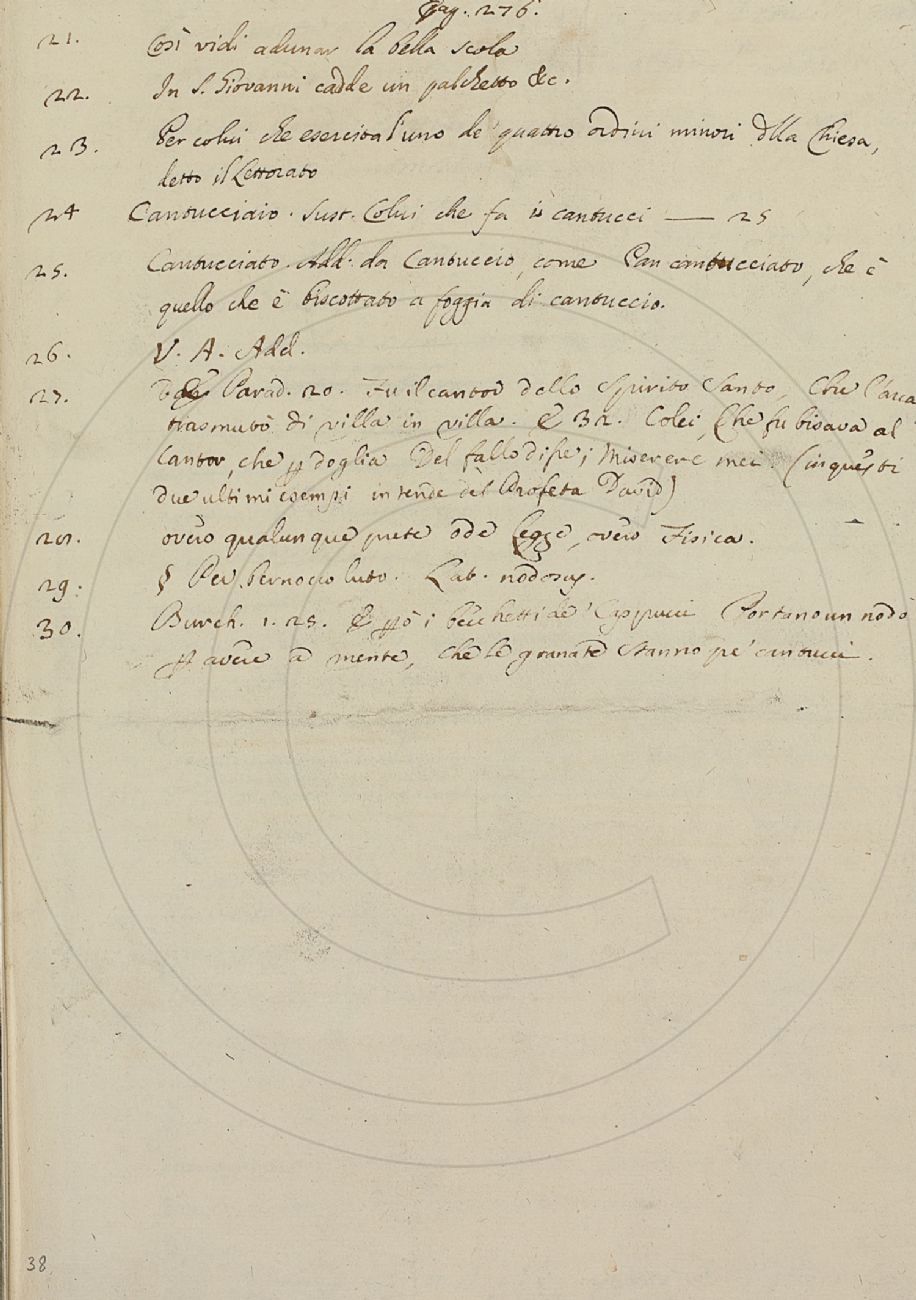 Pag. 276.
21. Così vidi adunar la bella scola
22. In S. Giovanni cadde un palchetto &c.
23. Per colui che esercita l'uno de' quattro ordini minori dlla Chiesa,
detto il Lettorato
24 Cantucciaio. Sust. Colui che fa i cantucci — 25
25. Cantucciato. Add. da Cantuccio, come Pan cantucciato, che è
quello che è biscottato a foggia di cantuccio.
26. V. A. Add.
27. Parad. 20. Fu il cantor dello Spirito Santo, Che l'arca
trasmutò di villa in villa. E 32. Colei, Che fu bisava al
Cantor, che p doglia Del fallo disse; Miserere mei. (in questi
due ultimi esempi intende del Profeta David)
28. overo qualunque prete ode Legge, overo Fisica.
29. § Per Bernoccoluto. Lat. nodosus.
30. Burch. 1. 25. E pò i becchetti de' Cappucci Portano un nodo
p avere a mente, Che le granate stanno pe' cantucci.
38